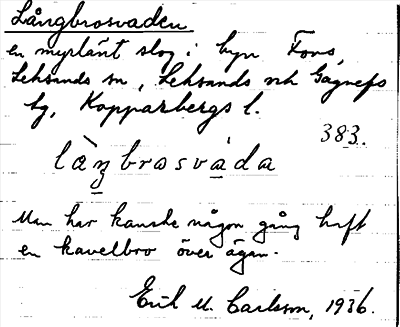 Långbrosvaden
en myrlänt slog i byn Fors,
Leksands sn, Leksands och Gagnefs
tg, Kopparbergs l.
383.
làŋbrasváda
Man har kanske någon gång haft
en kavelbro över ägan.
Erik M. Carlsson, 1936.